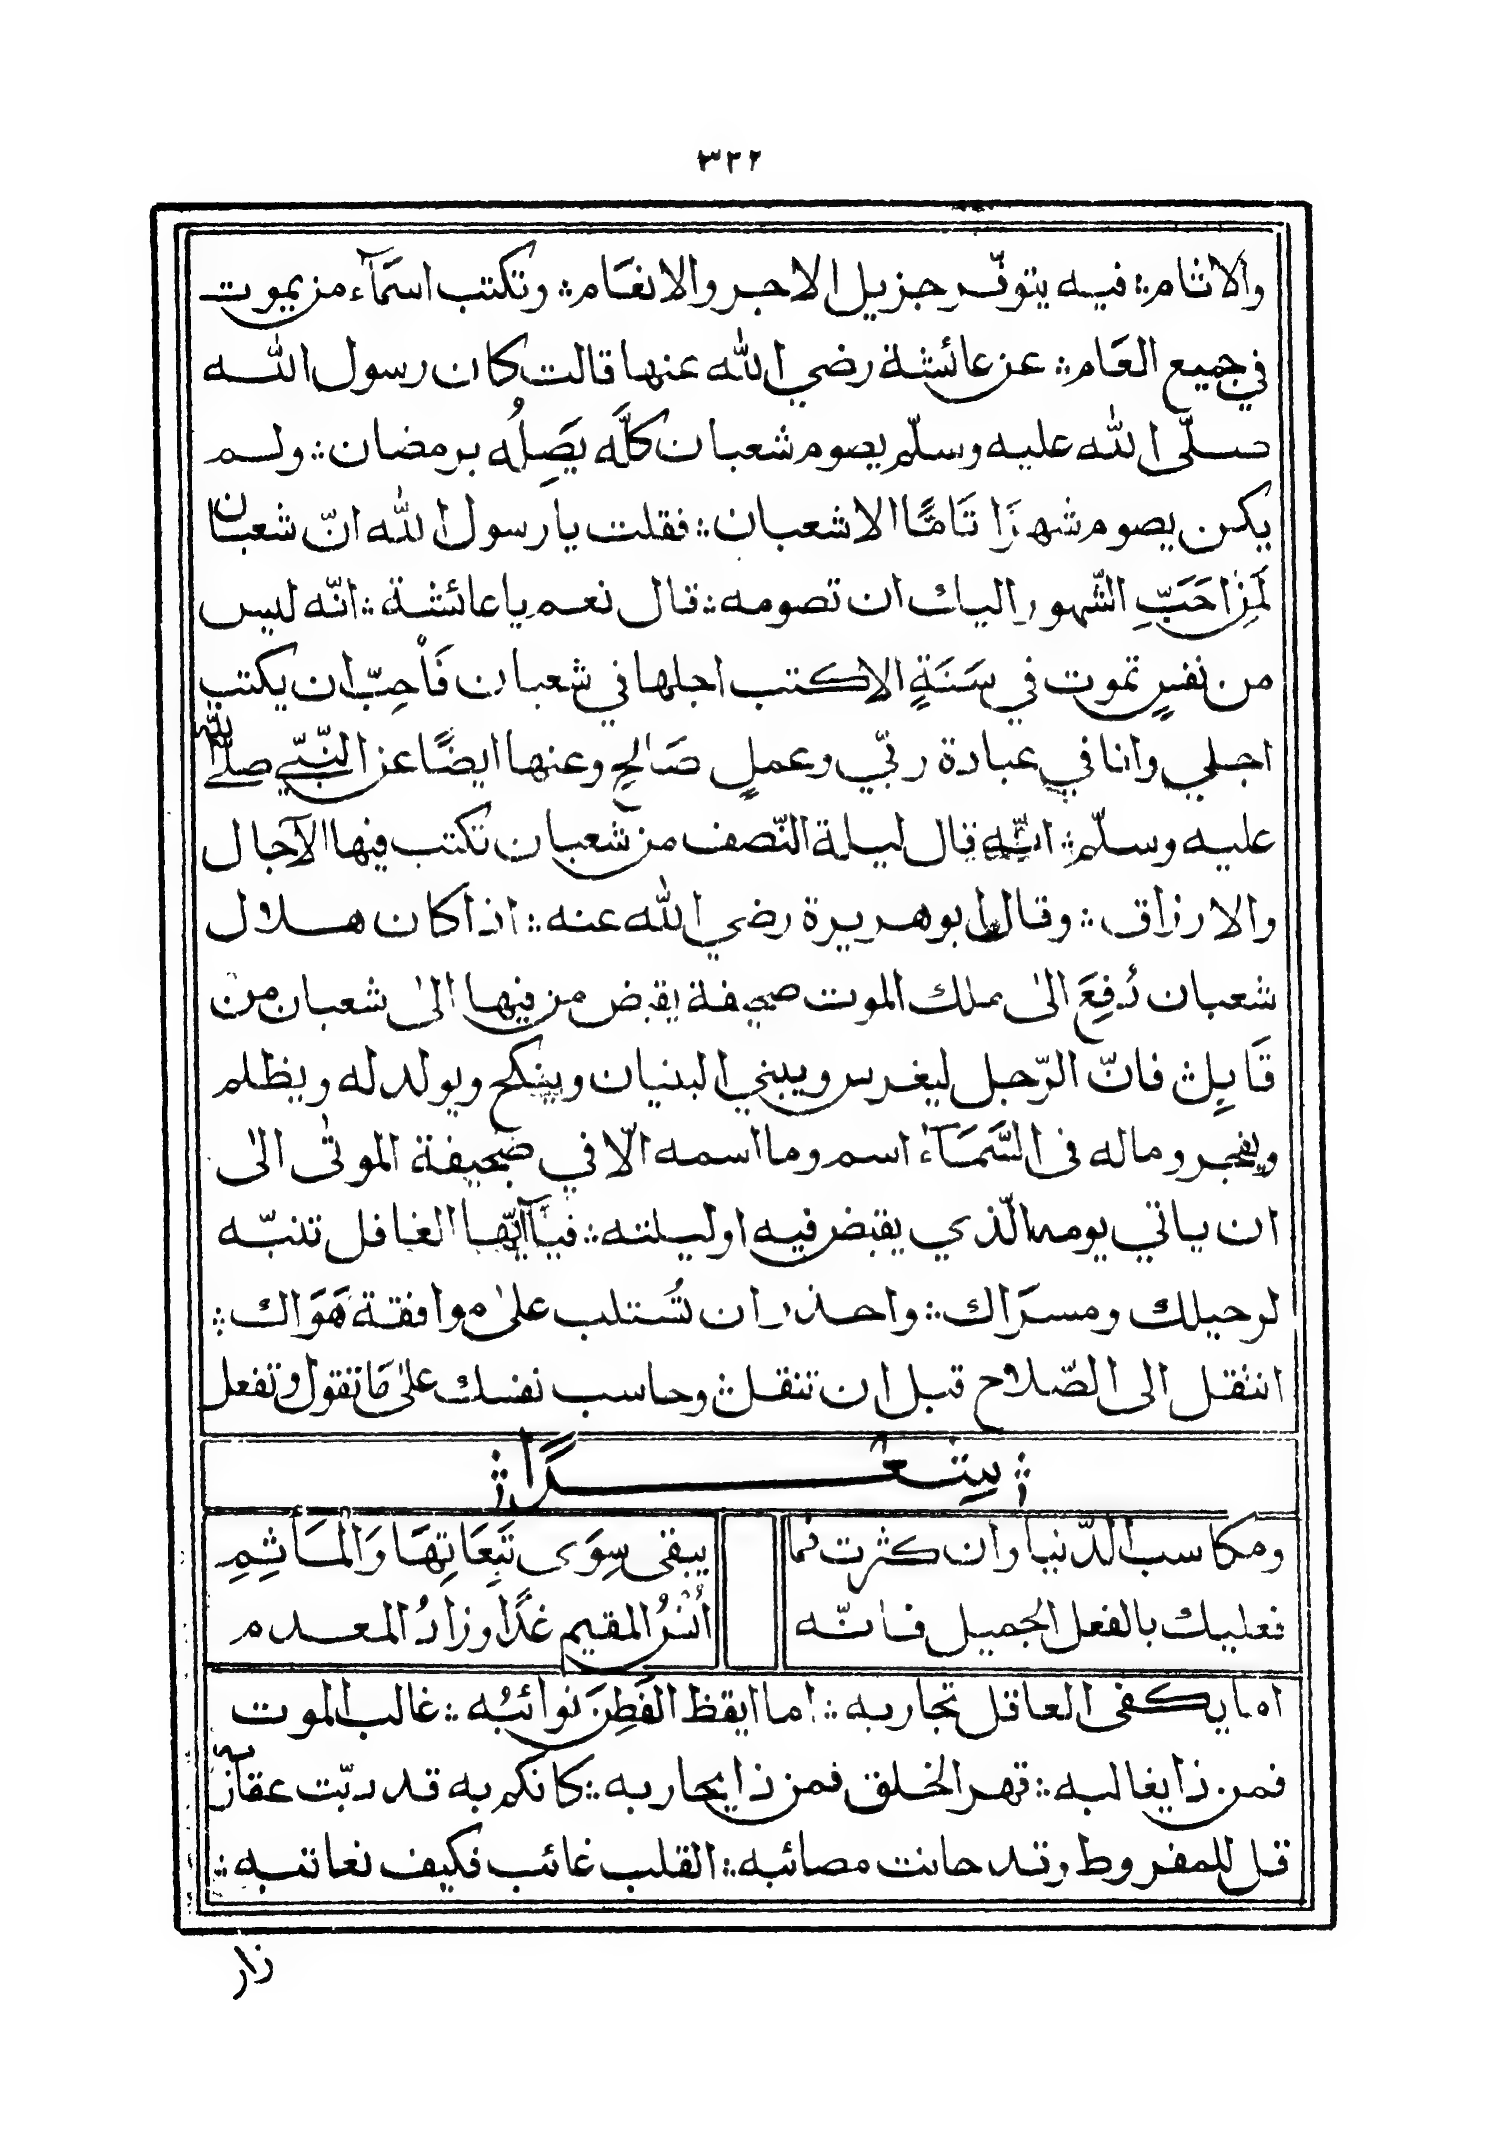 ٣٢٢
والاثام ؞ فيه يتوفّر جزيل الاجر والانعَام ؞ وتكتب اسمَآء من يموت
في جميع العَام ؞ عن عائشة رضي الله عنها قالت كان رسول الله
صلّى الله عليه وسلّم يصوم شعبان كلَّه يَصِلُه برمضان ؞ ولم
يكن يصوم شهرًا تَامًّا الا شعبان ؞ فقلت يا رسول الله انّ شعبان
لَمِن احَبِّ الشّهور اليك ان تصومه ؞ قال نعم يا عائشة ؞ انّه ليس
من نفسٍ تموت في سَنَةٍ الا كتب اجلها في شعبان فَأُحِبّ ان يكتب
اجلي وانا في عبادة ربّي وعملٍ صَالحٍ وعنها ايضًا عن النّبيّ صلّى الله
عليه وسلّم ؞ انّه قال ليلة النّصف من شعبان تكتب فيها الآجال
والارزاق ؞ وقال ابو هريرة رضي الله عنه ؞ اذا كان هلال
شعبان دُفِعَ الىٰ ملك الموت صحيفة يقبض من فيها الىٰ شعبان من
قَابِلٍ ؞ فانّ الرّجل ليغرس ويبني البنيان وينكح ويولد له ويظلم
ويفجر وماله فى السَّمَآء اسم وما اسمه الّا في صحيفة الموتٰى الىٰ
ان ياتي يومه الّذي يقبض فيه او ليلته ؞ فيَآ ايّها الغافل تنبّه
لرحيلك ومسرَاك ؞ واحذر ان تُستلب علىٰ موافقة هَوَاك ؞
انتقل الى الصّلاح قبل ان تنقل ؞ وحاسب نفسك علىٰ مَا تقول وتفعل
؞ بيتٖ عدًا ؞
ومكاسب الدّنيا وان كثرت فما يبقى سِوَى تَبِعَاتِهَا وَالمَأثِمِ
فعليك بالفعل الجميل فانّه أنسُ المقيم غدًا وزادُ المعدم
اما يكفى العاقل تجاربه ؞ اما ايقظ الفَطِنَ نوائبُه ؞ غالب الموت
فمن ذا يغالبه ؞ قهر الخلق فمن ذا يحاربه ؞ كانكم به قد دبّت عقاربه
قل للمفروط وقد حانت مصائبه ؞ القلب غائب فكيف نعاتبه ؞
زار